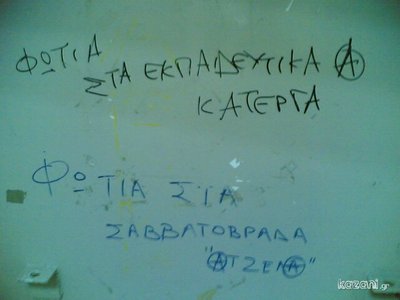 ΦΩΤΙΑ
ΣΤΑ ΕΚΠΑΔΕΥΤΙΚΑ Α
ΚΑΤΕΡΓΑ
ΦΩΤΙΑ ΣΤΑ
ΣΑΒΒΑΤΟΒΡΑΔΑ
"ΑΤΖΕΝΑ"
kozani.gr